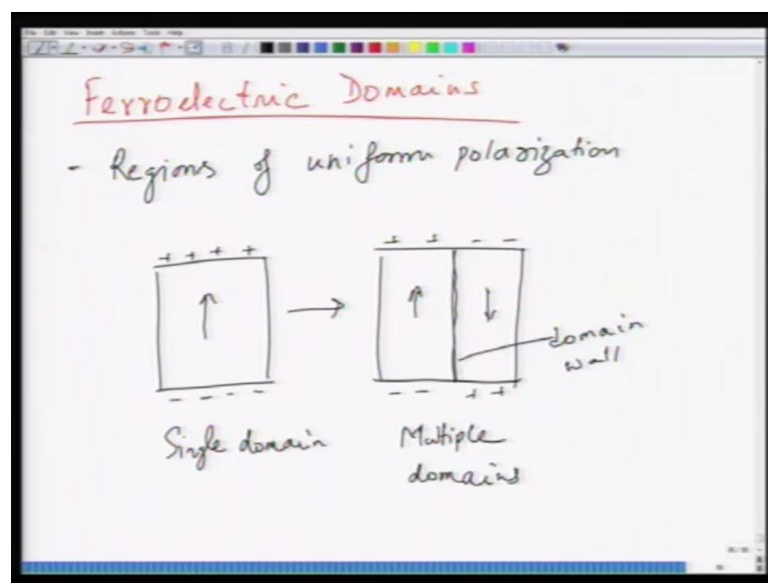 File Edit View Insert Actions Tools Help
Ferroelectric Domains
- Regions of uniform polarization
+ + + +
- - - -
Single domain
+ + - -
- - + +
Multiple
domains
domain
wall